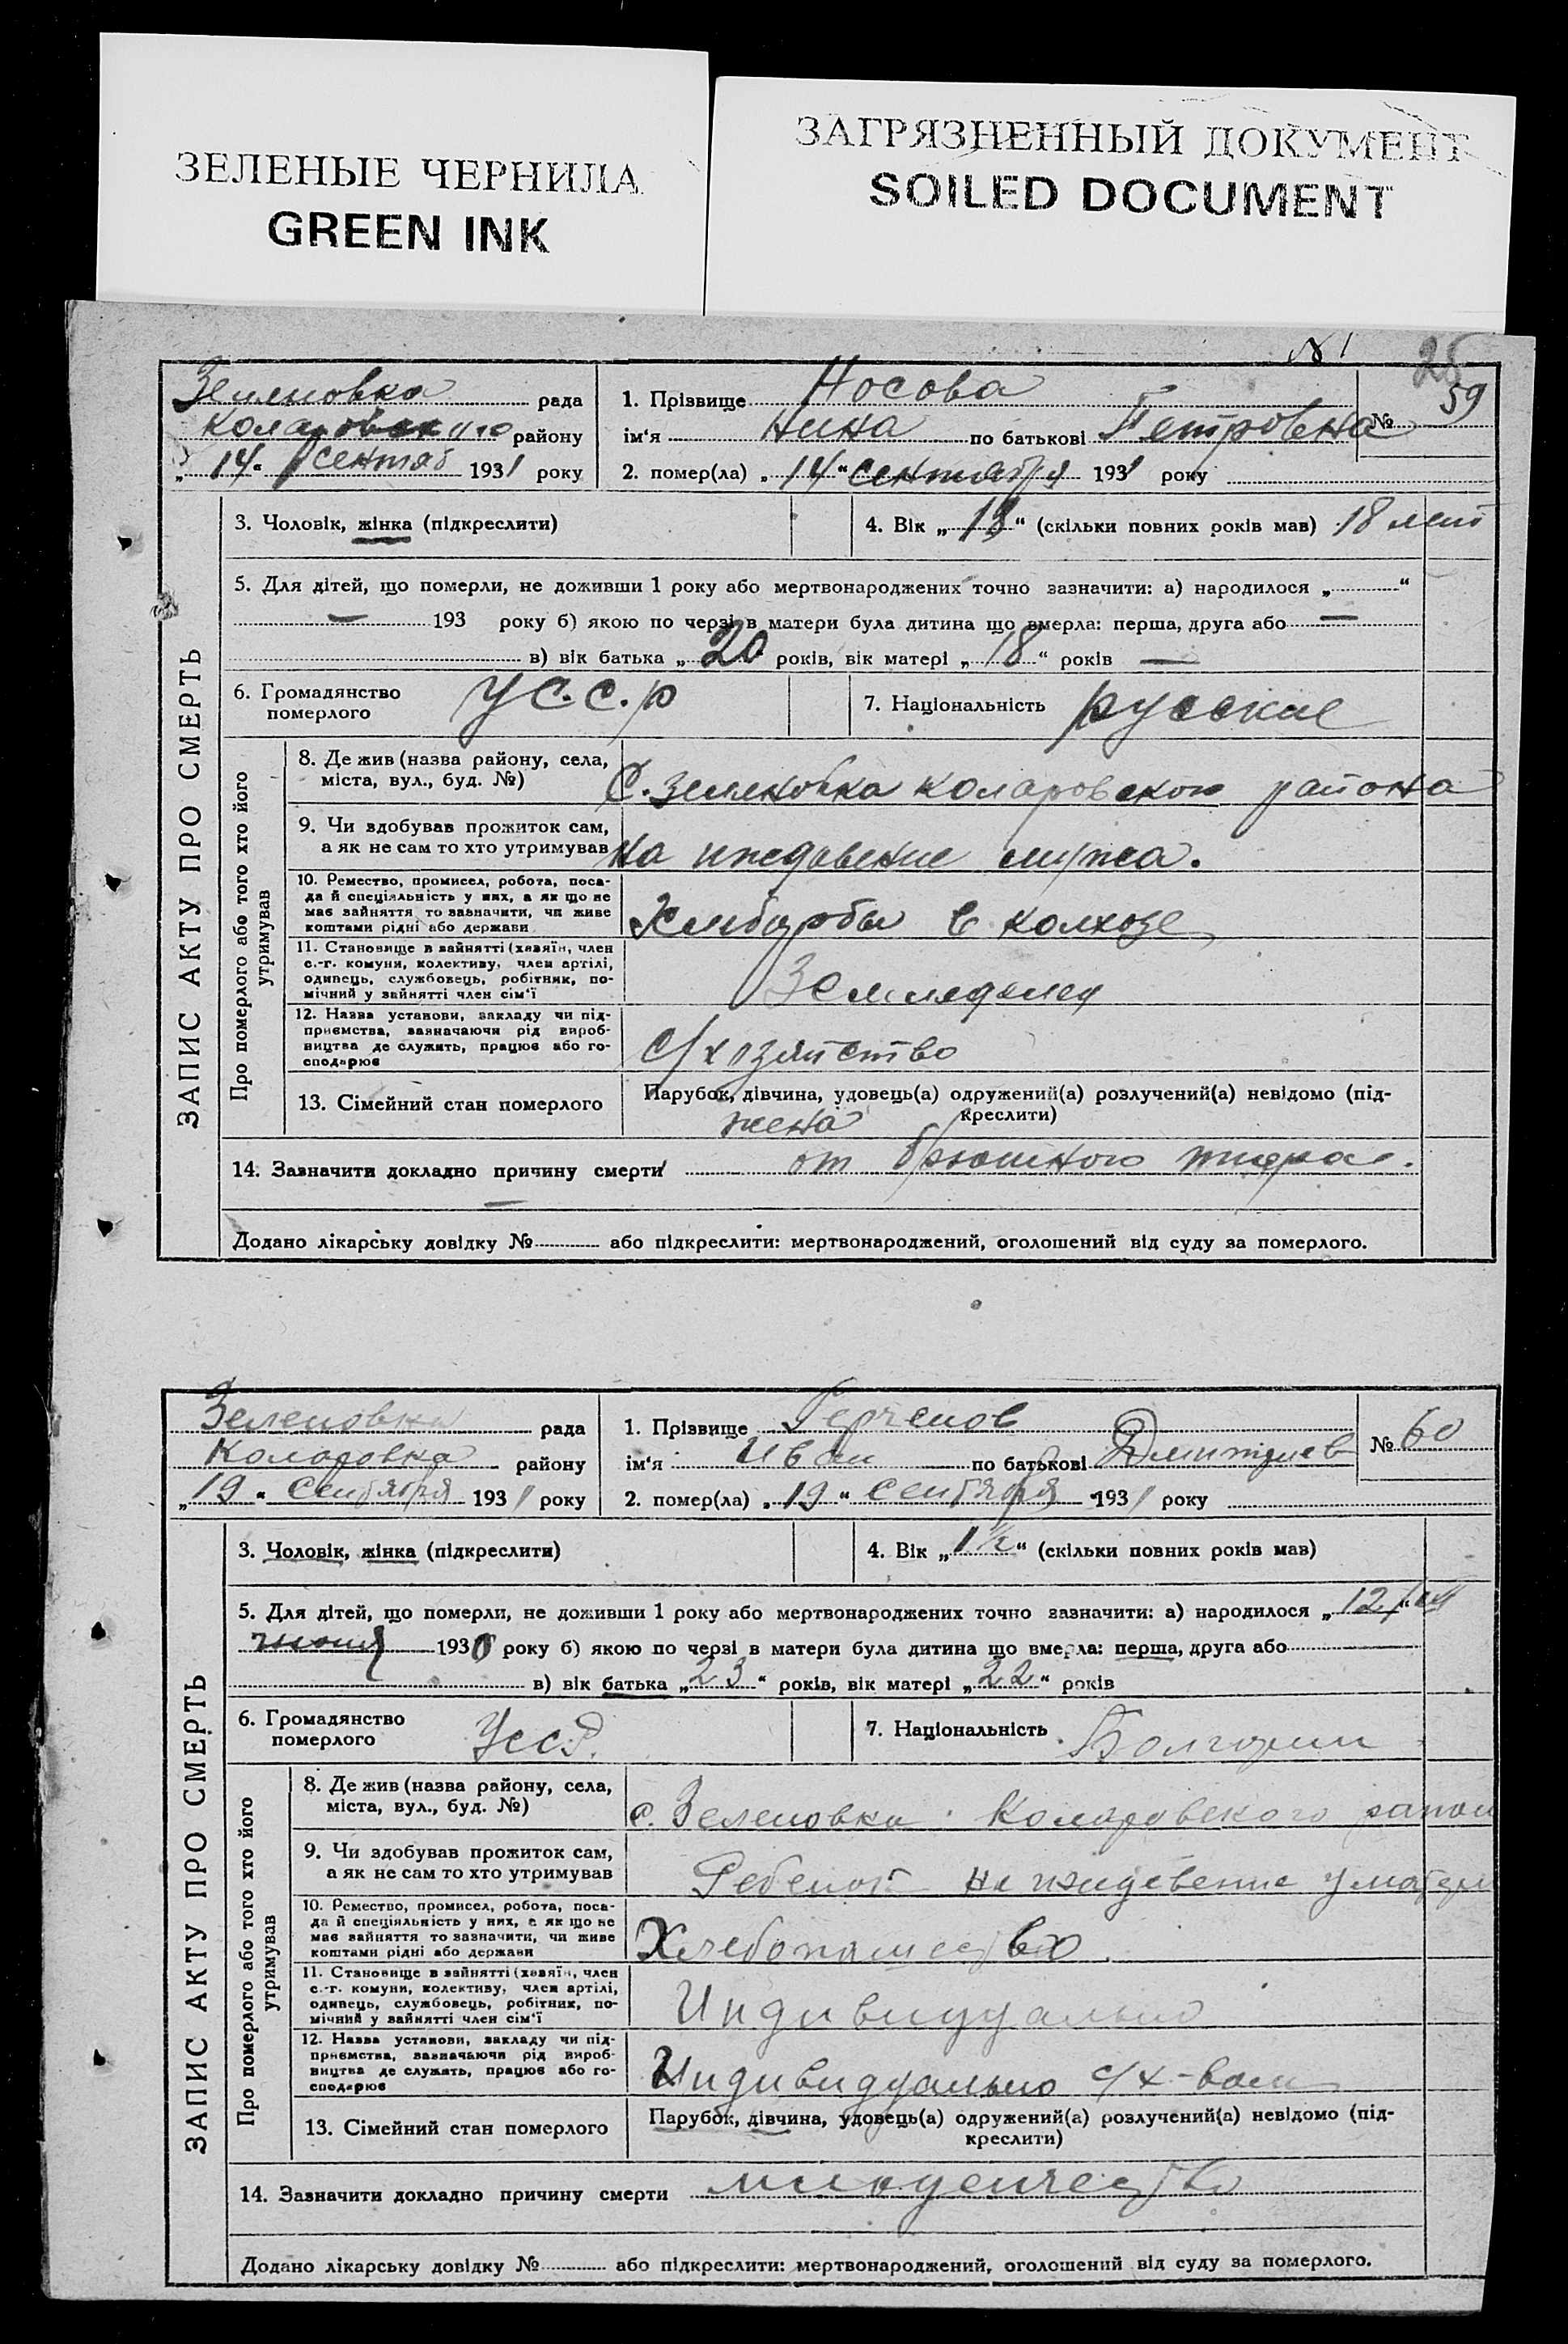 ЗЕЛЕНЫЕ ЧЕРНИЛА
GREEN INK
ЗАГРЯЗНЕННЫЙ ДОКУМЕНТ
SOILED DOCUMENT
№ 1
25
ЗАПИС АКТУ ПРО СМЕРТЬ
Зеленовка рада
района району
„14“ сентяб 1931 року
1. Прізвище Носова
ім‘я Нина по батькові Петровна
№ 59
2. помер(ла) „14“ сентября 1931 року
3. Чоловік, жінка (підкреслити)
4. Вік „18“ (скільки повних років мав) 18 лет
5. Для дітей, що померли, не доживши 1 року або мертвонароджених точно зазначити: а) народилося „ “
— 193 року б) якою по черзі в матери була дитина що вмерла: перша, друга або —
в) вік батька „20 років, вік матері „18“ років —
6. Громадянство померлого У.С.С.Р
7. Національність русские
Про померлого або того хто його утримував
8. Де жив (назва району, села, міста, вул., буд. №)
С. Зеленовка Коларовского района
9. Чи здобував прожиток сам, а як не сам то хто утримував
на иждевение мужа.
10. Ремество, промисел, робота, посада й спеціяльність у них, а як що не має зайняття то зазначити, чи живе коштами рідні або держави
в колхозе
11. Становище в зайнятті (хазяїн, член с.-г. комуни, колективу, член артілі, одинець, службовець, робітник, помічний у зайнятті член сім‘ї
Земледелец
12. Назва установи, закладу чи підприємства, зазначаючи рід виробництва де служить, працює або господарює
с/хозяйство
13. Сімейний стан померлого
Парубок, дівчина, удовець(а) одружений(а) розлучений(а) невідомо (підкреслити)
жена
14. Зазначити докладно причину смерти от брюшного тифа.
Додано лікарську довідку № або підкреслити: мертвонароджений, оголошений від суду за померлого.
ЗАПИС АКТУ ПРО СМЕРТЬ
Зеленовка рада
Коларовка району
„19“ Сентября 1931 року
1. Прізвище
ім‘я Иван по батькові Дмитриев
№ 60
2. помер(ла) „19“ Сентября 1931 року
3. Чоловік, жінка (підкреслити)
4. Вік „1½“ (скільки повних років мав)
5. Для дітей, що померли, не доживши 1 року або мертвонароджених точно зазначити: а) народилося „12
июня 1930 року б) якою по черзі в матери була дитина що вмерла: перша, друга або
в) вік батька „23“ років, вік матері „22“ років
6. Громадянство померлого УССР.
7. Національність Болгарин
Про померлого або того хто його утримував
8. Де жив (назва району, села, міста, вул., буд. №)
с. Зеленовка Коларовского район
9. Чи здобував прожиток сам, а як не сам то хто утримував
Ребенок на иждевение у матери
10. Ремество, промисел, робота, посада й спеціяльність у них, а як що не має зайняття то зазначити, чи живе коштами рідні або держави
Хлебопашество
11. Становище в зайнятті (хазяїн, член с.-г. комуни, колективу, член артілі, одинець, службовець, робітник, помічний у зайнятті член сім‘ї
Индивидуально
12. Назва установи, закладу чи підприємства, зазначаючи рід виробництва де служить, працює або господарює
Индивидуально с/х-вом
13. Сімейний стан померлого
Парубок, дівчина, удовець(а) одружений(а) розлучений(а) невідомо (підкреслити)
14. Зазначити докладно причину смерти младенчество
Додано лікарську довідку № або підкреслити: мертвонароджений, оголошений від суду за померлого.